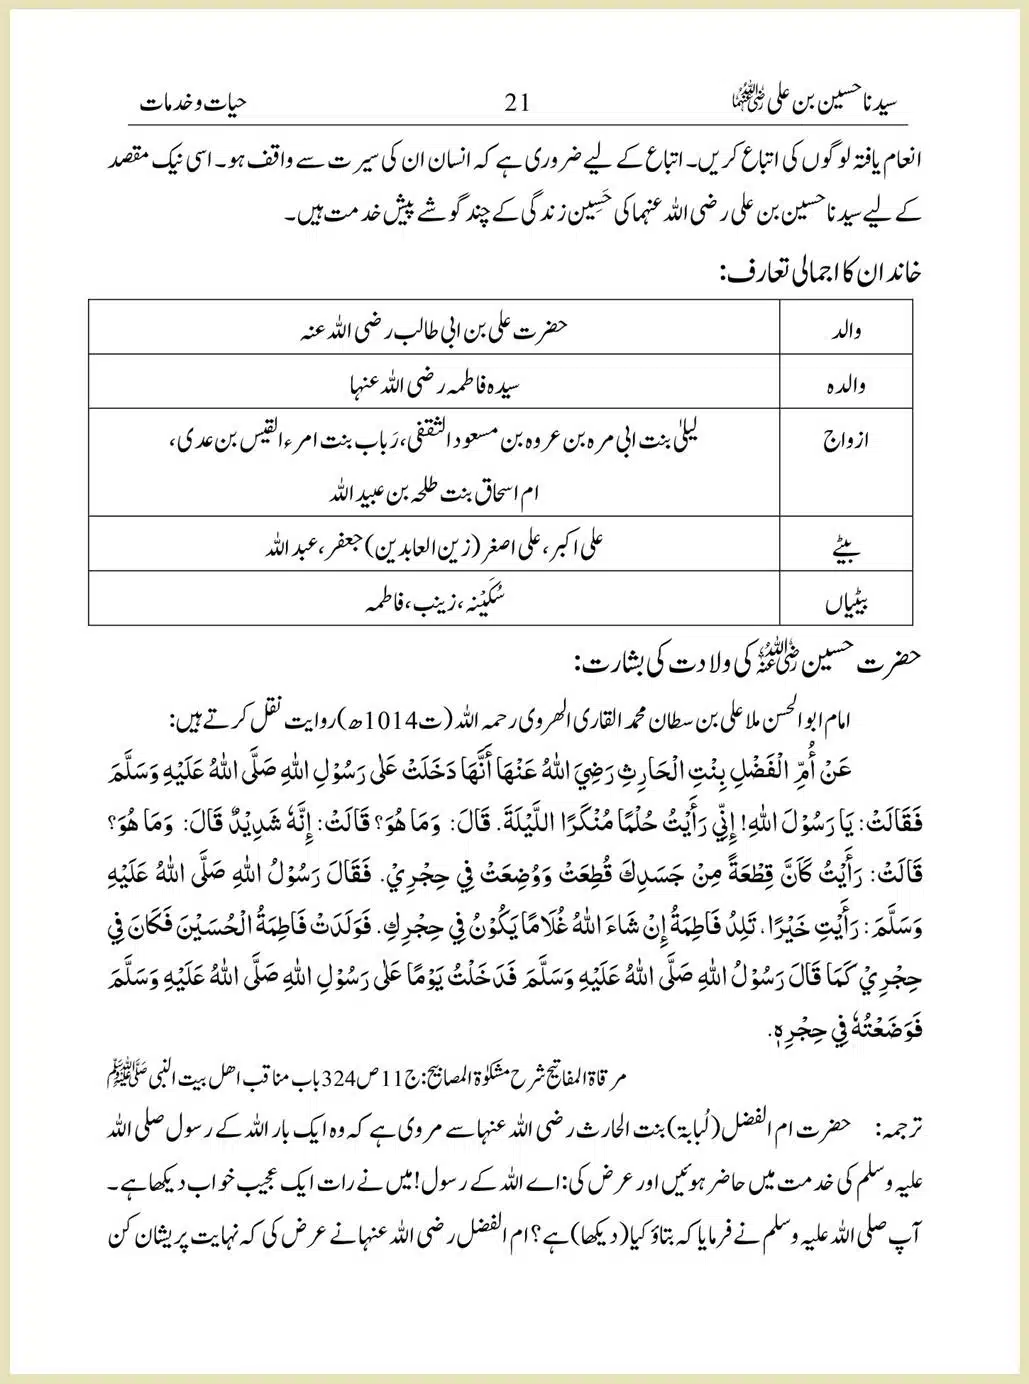 سیدنا حسین بن علی رضی اللہ عنہما 21 حیات و خدمات
انعام یافتہ لوگوں کی اتباع کریں۔ اتباع کے لیے ضروری ہے کہ انسان ان کی سیرت سے واقف ہو۔ اسی نیک مقصد
کے لیے سیدنا حسین بن علی رضی اللہ عنہما کی حَسِین زندگی کے چند گوشے پیش خدمت ہیں۔
خاندان کا اجمالی تعارف:
والد حضرت علی بن ابی طالب رضی اللہ عنہ
والدہ سیدہ فاطمہ رضی اللہ عنہا
ازواج لیلیٰ بنت ابی مرہ بن عروہ بن مسعود الثقفی، رَباب بنت امرء القیس بن عدی،
ام اسحاق بنت طلحہ بن عبید اللہ
بیٹے علی اکبر، علی اصغر (زین العابدین) جعفر، عبد اللہ
بیٹیاں سُکَیْنہ، زینب، فاطمہ
حضرت حسین رضی اللہ عنہ کی ولادت کی بشارت:
امام ابو الحسن ملا علی بن سطان محمد القاری الھروی رحمہ اللہ (ت1014ھ) روایت نقل کرتے ہیں:
عَنْ أُمِّ الْفَضْلِ بِنْتِ الْحَارِثِ رَضِيَ اللهُ عَنْهَا أَنَّهَا دَخَلَتْ عَلٰى رَسُوْلِ اللهِ صَلَّى اللهُ عَلَيْهِ وَسَلَّمَ
فَقَالَتْ: يَا رَسُوْلَ اللهِ! إِنِّي رَأَيْتُ حُلْمًا مُنْكَرًا اللَّيْلَةَ. قَالَ: وَمَا هُوَ؟ قَالَتْ: إِنَّهٗ شَدِيْدٌ قَالَ: وَمَا هُوَ؟
قَالَتْ: رَأَيْتُ كَاَنَّ قِطْعَةً مِنْ جَسَدِكَ قُطِعَتْ وَوُضِعَتْ فِي حِجْرِيْ. فَقَالَ رَسُوْلُ اللهِ صَلَّى اللهُ عَلَيْهِ
وَسَلَّمَ: رَأَيْتِ خَيْرًا، تَلِدُ فَاطِمَةُ إِنْ شَاءَ اللهُ غُلَامًا يَكُوْنُ فِي حِجْرِكِ. فَوَلَدَتْ فَاطِمَةُ الْحُسَيْنَ فَكَانَ فِي
حِجْرِيْ كَمَا قَالَ رَسُوْلُ اللهِ صَلَّى اللهُ عَلَيْهِ وَسَلَّمَ فَدَخَلْتُ يَوْمًا عَلٰى رَسُوْلِ اللهِ صَلَّى اللهُ عَلَيْهِ وَسَلَّمَ
فَوَضَعْتُهٗ فِي حِجْرِهٖ.
مرقاۃ المفاتیح شرح مشکوٰۃ المصابیح: ج11 ص324 باب مناقب اھل بیت النبی صلی اللہ علیہ وسلم
ترجمہ: حضرت ام الفضل (لُبابۃ) بنت الحارث رضی اللہ عنہا سے مروی ہے کہ وہ ایک بار اللہ کے رسول صلی اللہ
علیہ وسلم کی خدمت میں حاضر ہوئیں اور عرض کی: اے اللہ کے رسول! میں نے رات ایک عجیب خواب دیکھا ہے۔
آپ صلی اللہ علیہ وسلم نے فرمایا کہ بتاؤ کیا (دیکھا) ہے؟ ام الفضل رضی اللہ عنہا نے عرض کی کہ نہایت پریشان کن